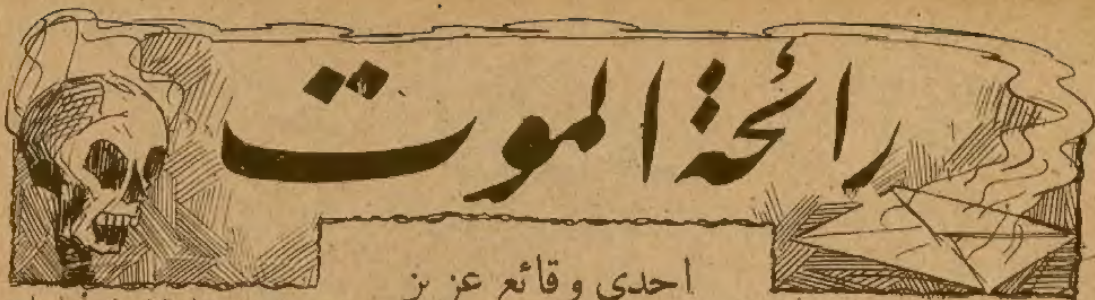 رائحة الموت
احدى وقائع عزيز